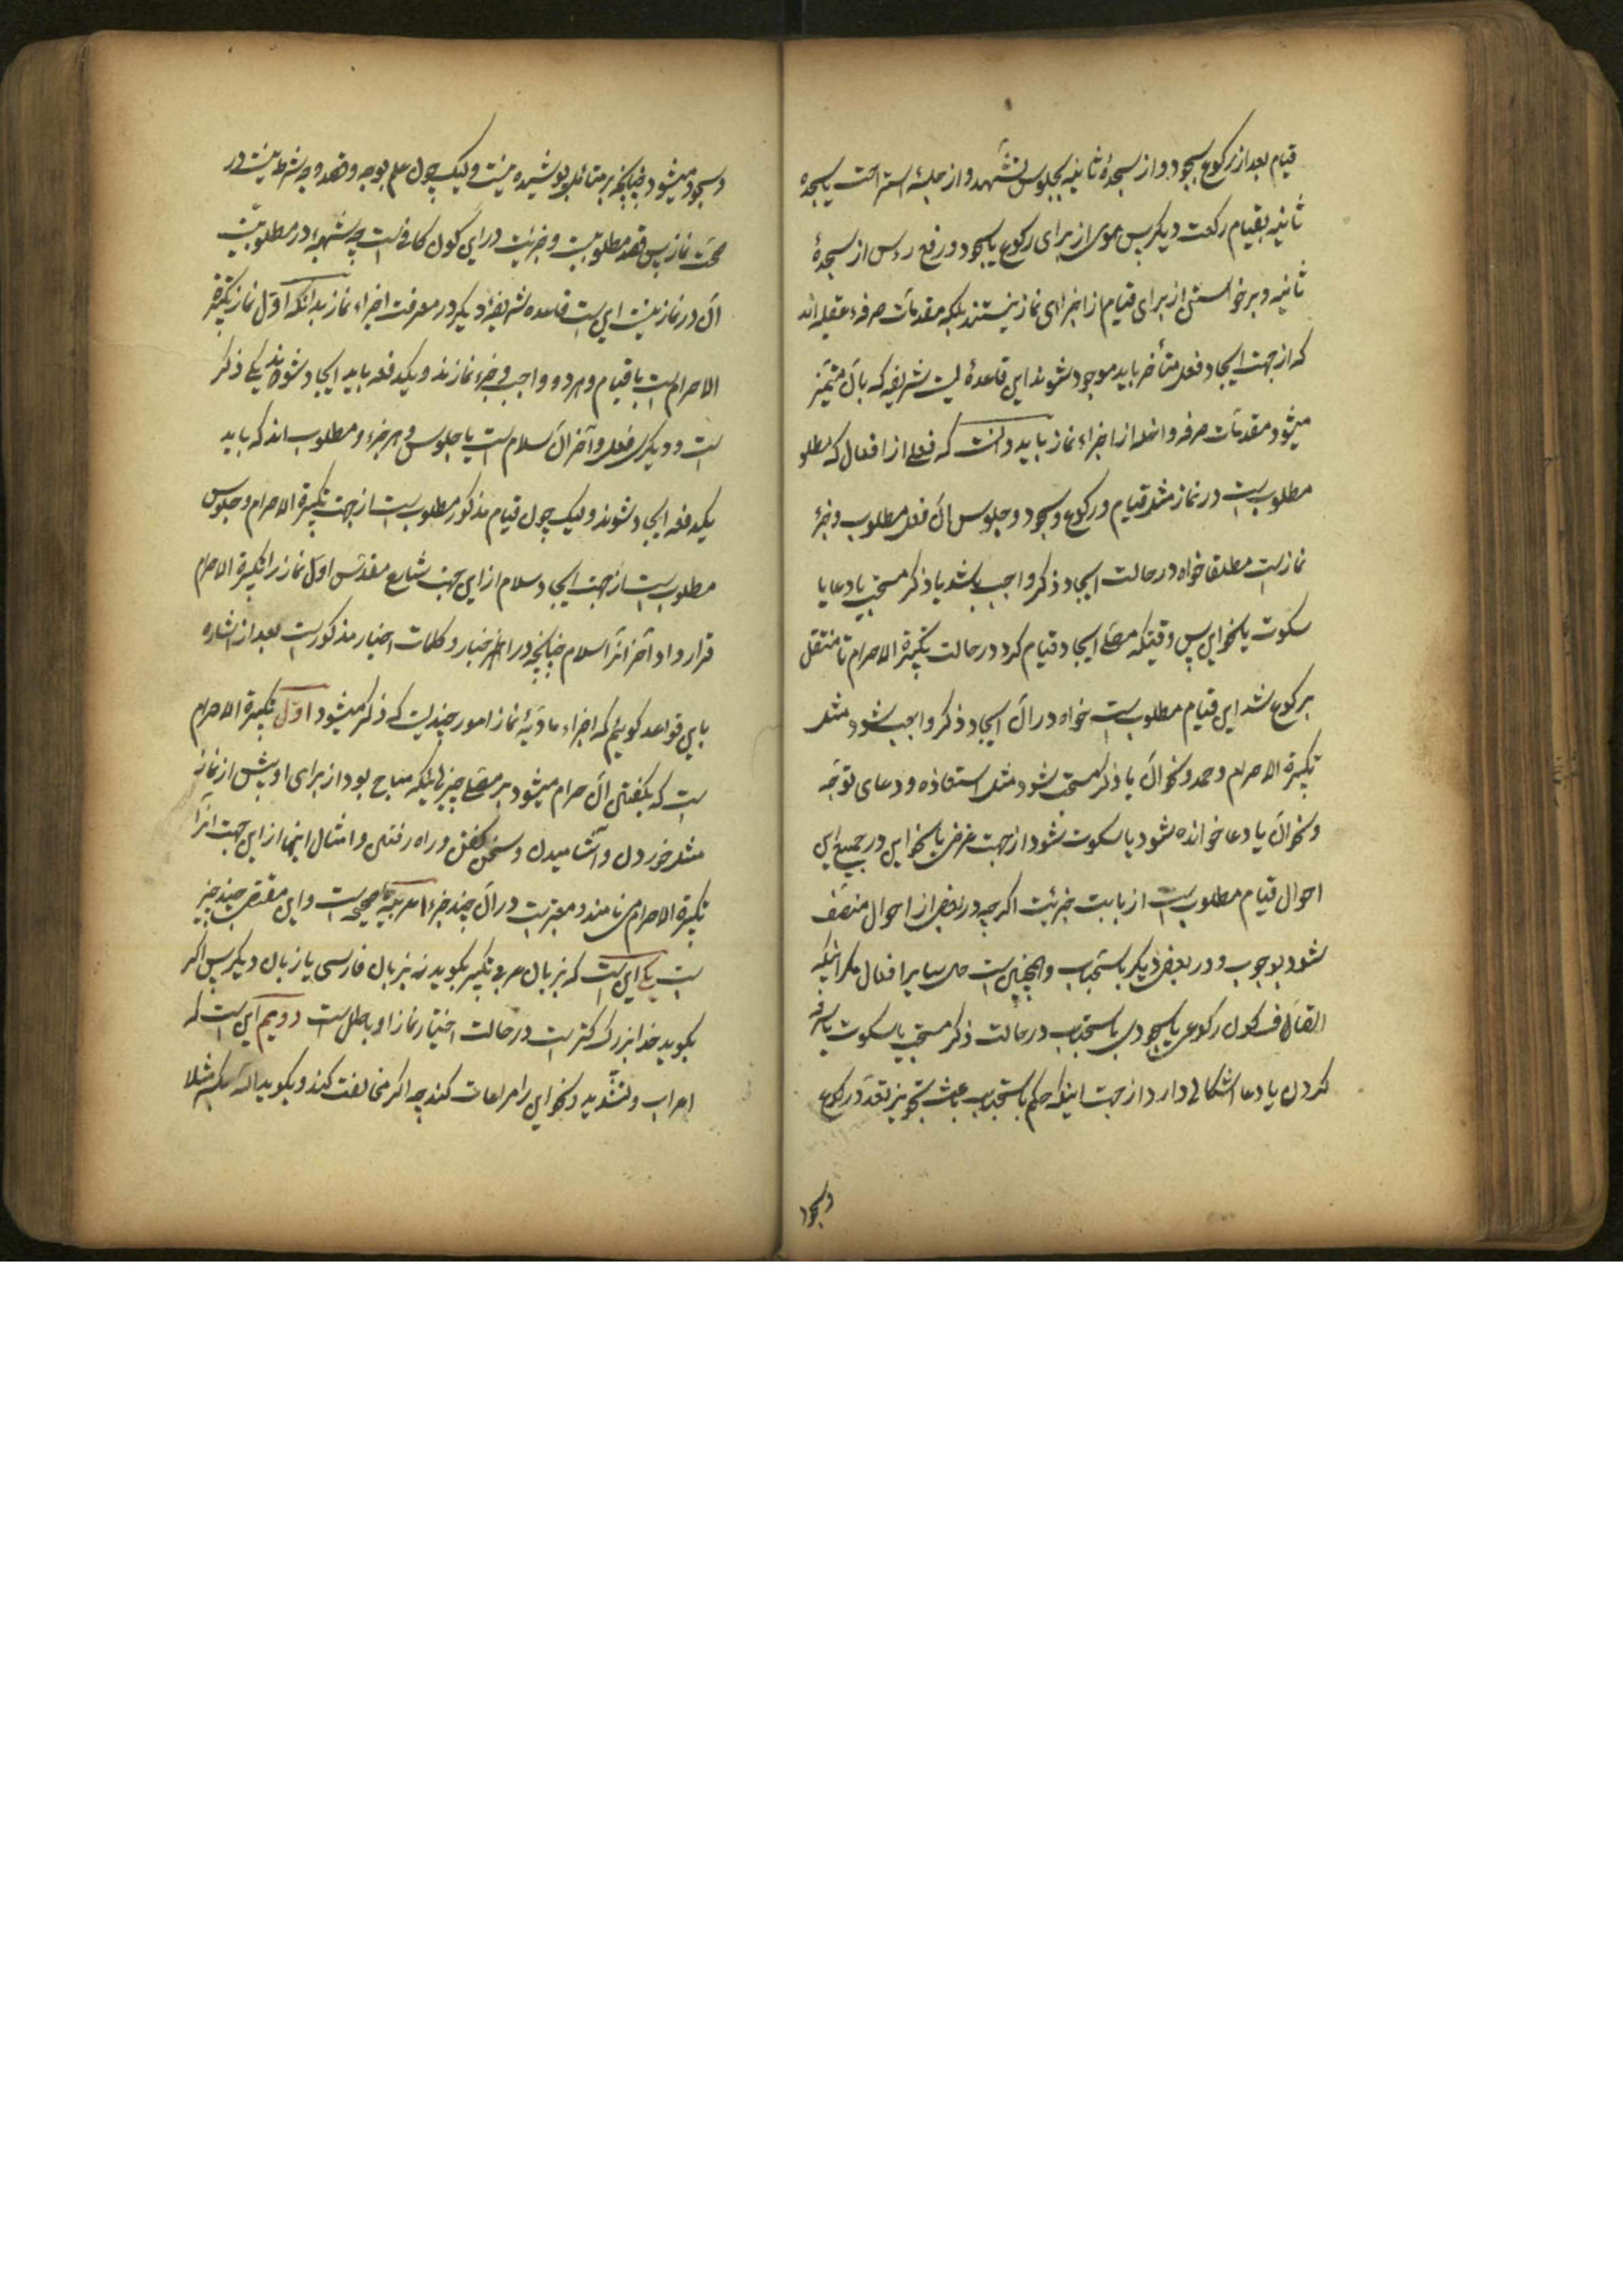 قیام بعد از رکوع بسجود و از سجدهٔ ثانیه بجلوس تشهد و از جلسهٔ استراحت یا سجده
ثانیه بقیام رکعت دیکر پس هوی از برای رکوع یا سجود و رفع رءس از سجدهٔ
ثانیه و برخواستن از برای قیام از اجزای نماز نیستند بلکه مقدمات صرفهٔ عقلیه اند
که از جهت ایجاد فعل متأخر باید موجود شوند این قاعدهٔ ایست شریفه که بآن متمیز
میشود مقدمات صرفه و اخله از اجزاء نماز باید دانست که فعلی از افعال که مطلو
مطلوبست در نماز مثل قیام و رکوع و سجود و جلوس آن فعل مطلوب و جزء
نماز است مطلقا خواه در حالت ایجاد ذکر واجب باشد یا ذکر مستحب یا دعا یا
سکوت یا نحو این پس وقتیکه مصلی ایجاد قیام کرد در حالت تکبیرة الاحرام تا منتقل
برکوع شد این قیام مطلوبست خواه در آن ایجاد ذکر واجب شود مثل
تکبیرة الاحرام و حمد و نحو آن یا ذکر مستحب شود مثل استعاذه و دعای توجه
و نحو آن یا دعا خوانده شود یا سکوت شود از جهت غرضی یا نحو این در جمیع این
احوال قیام مطلوبست از بابت جزئیت اکرچه در بعض از احوال متصف
شود بوجوب و در بعض دیکر باستحباب و همچنین است حال سایر افعال مکر اینکه
اتصاف کون رکوعی یا سجودی باستحباب در حالت ذکر مستحب یا سکوت یا سرفه
کردن یا دعا اشکالی دارد از جهت اینکه حکم باستحباب باعث تجویز تعدد رکوع
و سجود
و سجود میشود چنانچه بر متأمل پوشیده نیست و لیک چون علم بوجه و قصد وجه شرط نیست در
صحت نماز پس قصد مطلوبیت و جزئیت در این کون کافیست چه شبههٔ در مطلوبیت
آن در نماز نیست این است قاعده شریفهٔ دیکر در معرفت اجزاء نماز بدانکه اول نماز تکبیرة
الاحرام است با قیام و هر دو واجب و جزء نمازند و یکدفعه باید ایجاد شوند یکی ذکر
است و دیکری فعل و آخر آن سلام است با جلوس و هر جزء و مطلوب اند که باید
یکدفعه ایجاد شوند و لیک چون قیام مذکور مطلوبست از جهت تکبیرة الاحرام و جلوس
مطلوبست از جهت ایجاد سلام از این جهت شارع مقدس اول نماز را تکبیرة الاحرام
قرار داد و آخر آنرا سلام چنانچه در اخبار و کلمات اخیار مذکور است بعد از اشاره
باین قواعد کوییم که اجزاء مادیهٔ نماز امور چندیست که ذکر میشود اول تکبیرة الاحرام
است که بکفتن آن حرام میشود بر مصلی چیزهائیکه مباح بود از برای او پیش از نماز
مثل خوردن و آشامیدن و سخن کفتن و راه رفتن و امثال اینها از این جهت آنرا
تکبیرة الاحرام می نامند و معتبر است در آن چند جزء امر صحیح است و این مقتضی چند چیز
است یکی این است که بزبان عربی تکبیر بکوید نه بزبان فارسی یا زبان دیکر پس اکر
بکوید خدا بزرک تر است در حالت اختیار نماز او باطل است دویم این است که
اعراب و تشدید و نحو این را مراعات کند چه اکر مخالفت کند و بکوید الله اکبر مثلا